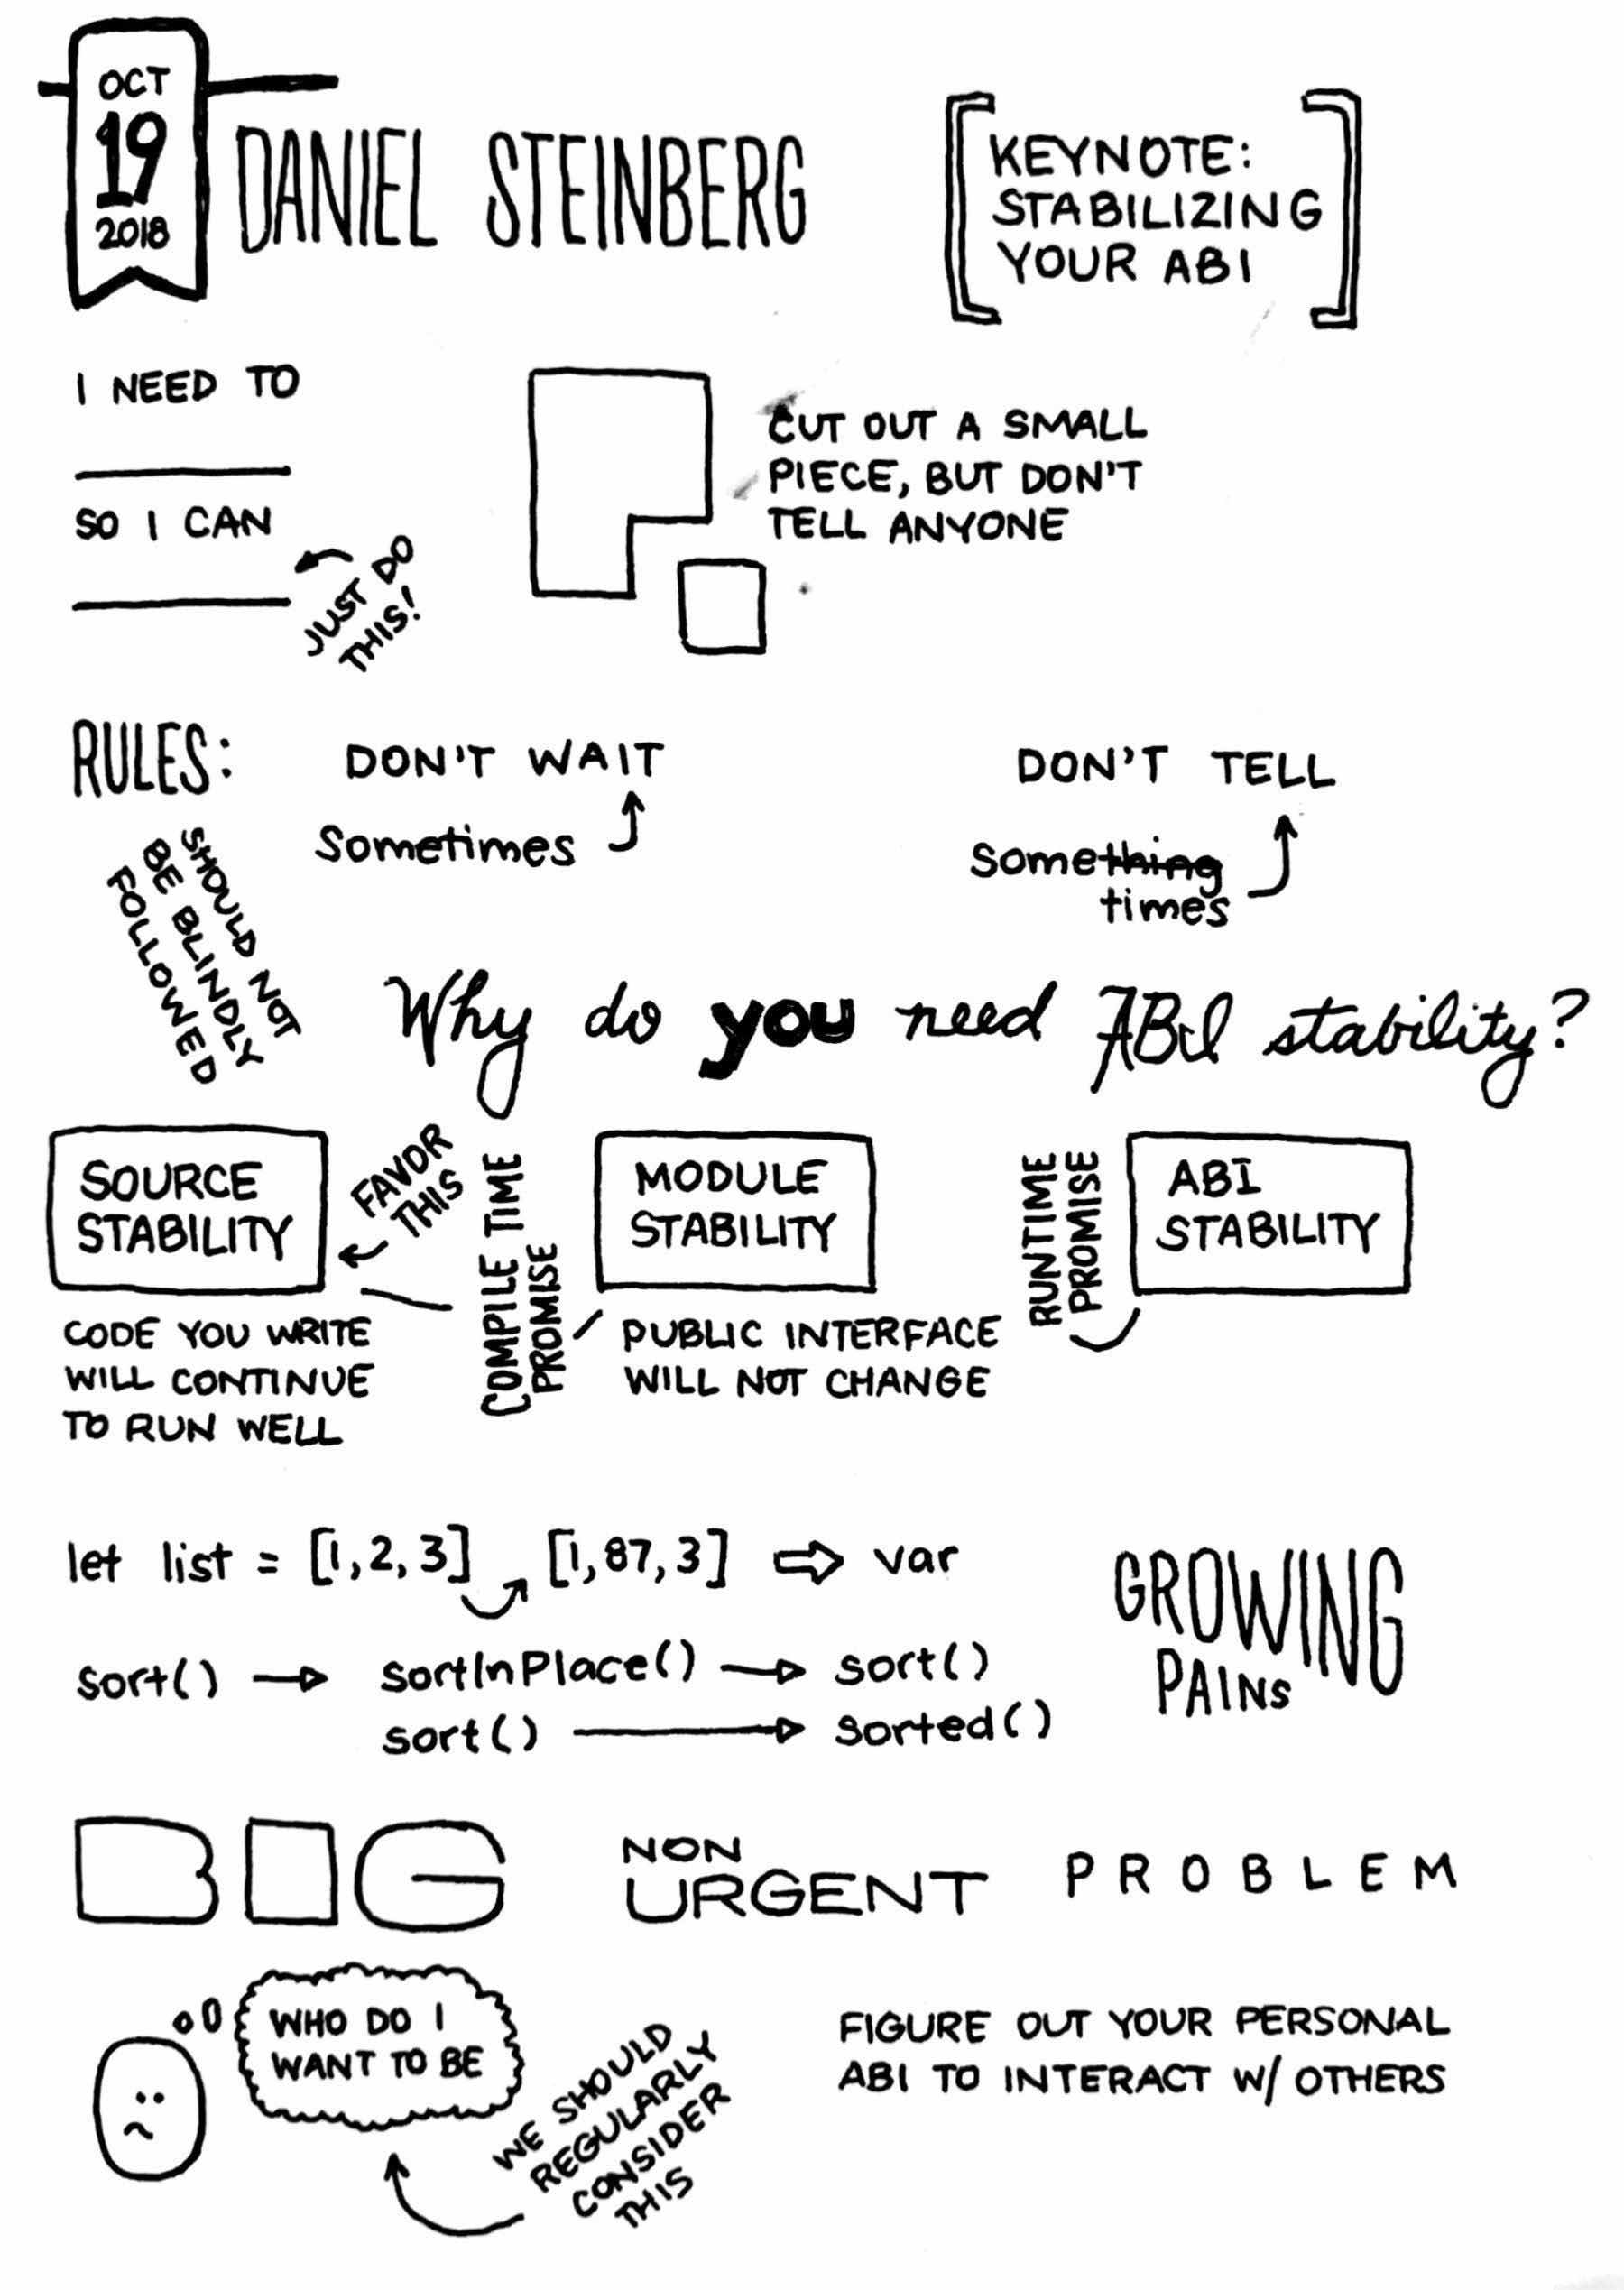 OCT
19
2018
DANIEL STEINBERG
KEYNOTE:
STABILIZING
YOUR ABI
I NEED TO
SO I CAN
JUST DO
THIS!
CUT OUT A SMALL
PIECE, BUT DON'T
TELL ANYONE
RULES:
SHOULD NOT
BE BLINDLY
FOLLOWED
DON'T WAIT
Sometimes
DON'T TELL
Something
times
Why do you need ABI stability?
SOURCE
STABILITY
FAVOR
THIS
CODE YOU WRITE
WILL CONTINUE
TO RUN WELL
COMPILE TIME
PROMISE
MODULE
STABILITY
PUBLIC INTERFACE
WILL NOT CHANGE
RUNTIME
PROMISE
ABI
STABILITY
let list = [1,2,3] [1,87,3] ⇨ var
sort() → sortInPlace() → sort()
sort() → sorted()
GROWING
PAINS
BIG
NON
URGENT
PROBLEM
WHO DO I
WANT TO BE
WE SHOULD
REGULARLY
CONSIDER
THIS
FIGURE OUT YOUR PERSONAL
ABI TO INTERACT W/ OTHERS